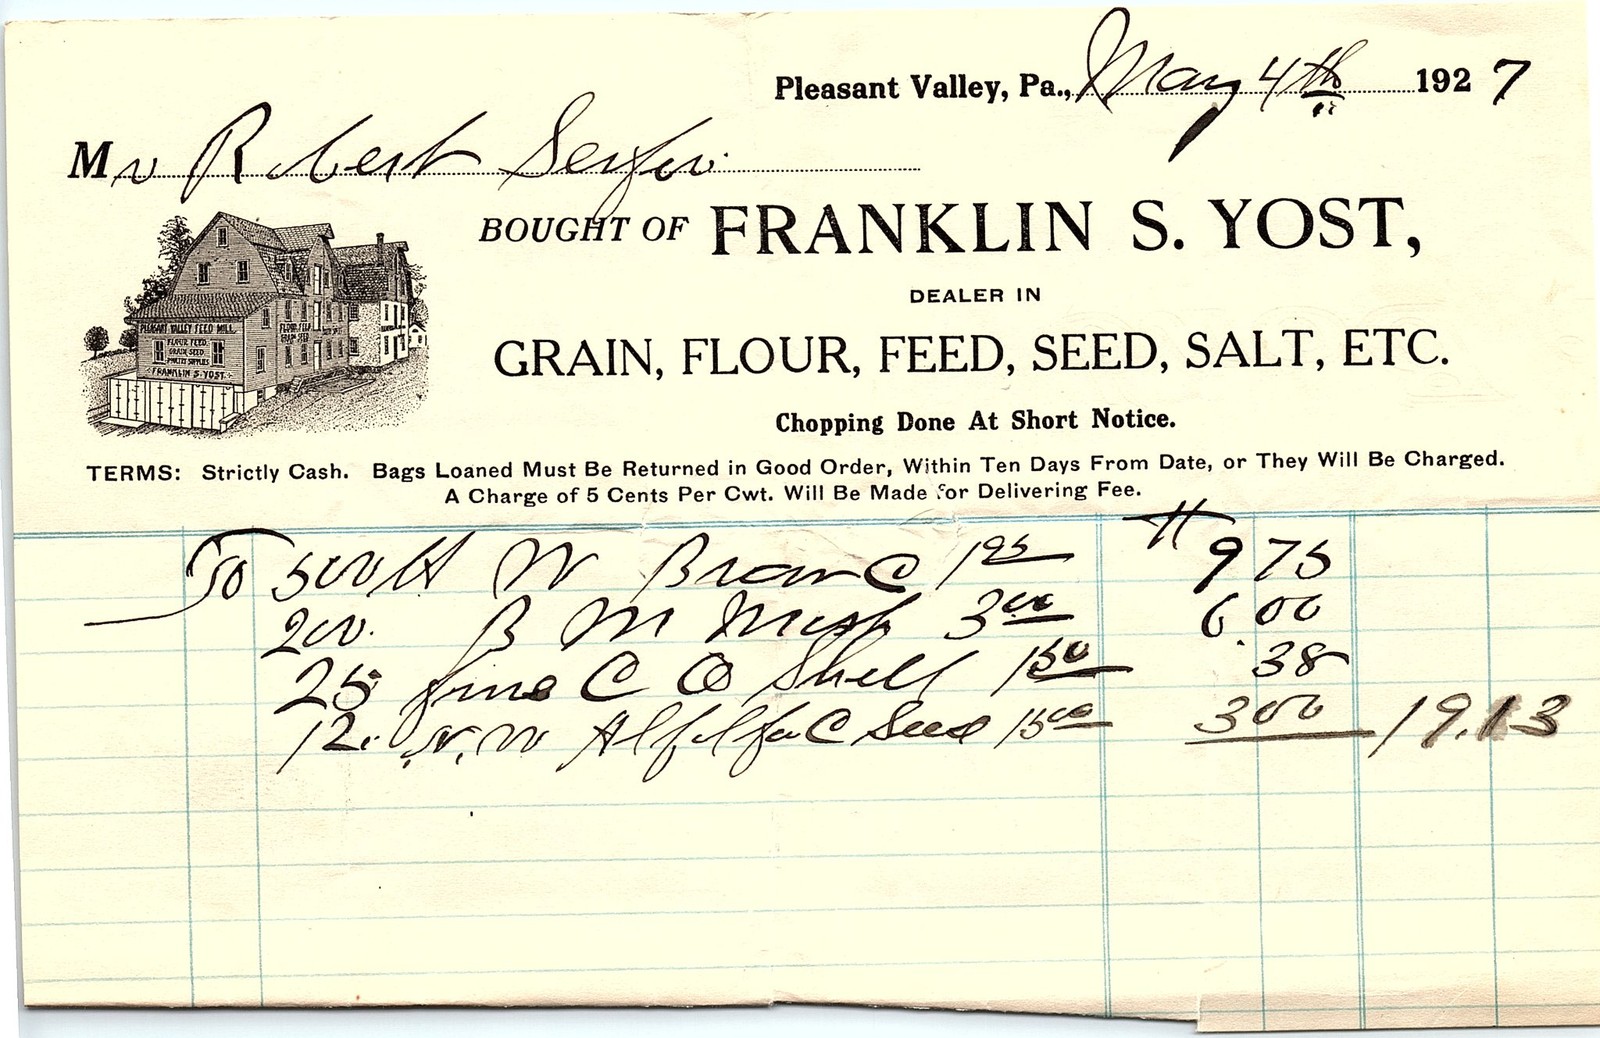 Pleasant Valley, Pa., May 4th 1927
Mr Robert
BOUGHT OF FRANKLIN S. YOST,
DEALER IN
GRAIN, FLOUR, FEED, SEED, SALT, ETC.
PLEASANT VALLEY FEED MILL
FLOUR FEED
GRAIN SEED
POULTRY SUPPLIES
FRANKLIN S. YOST
Chopping Done At Short Notice.
TERMS: Strictly Cash. Bags Loaned Must Be Returned in Good Order, Within Ten Days From Date, or They Will Be Charged.
A Charge of 5 Cents Per Cwt. Will Be Made for Delivering Fee.
To 500 W Bran @ 1 95 9 75
200 B M Mash 3 00 6 00
25 fine C O Shell 1 50 38
12 N.W Alfalfa Seed 15 00 3 00 19.13